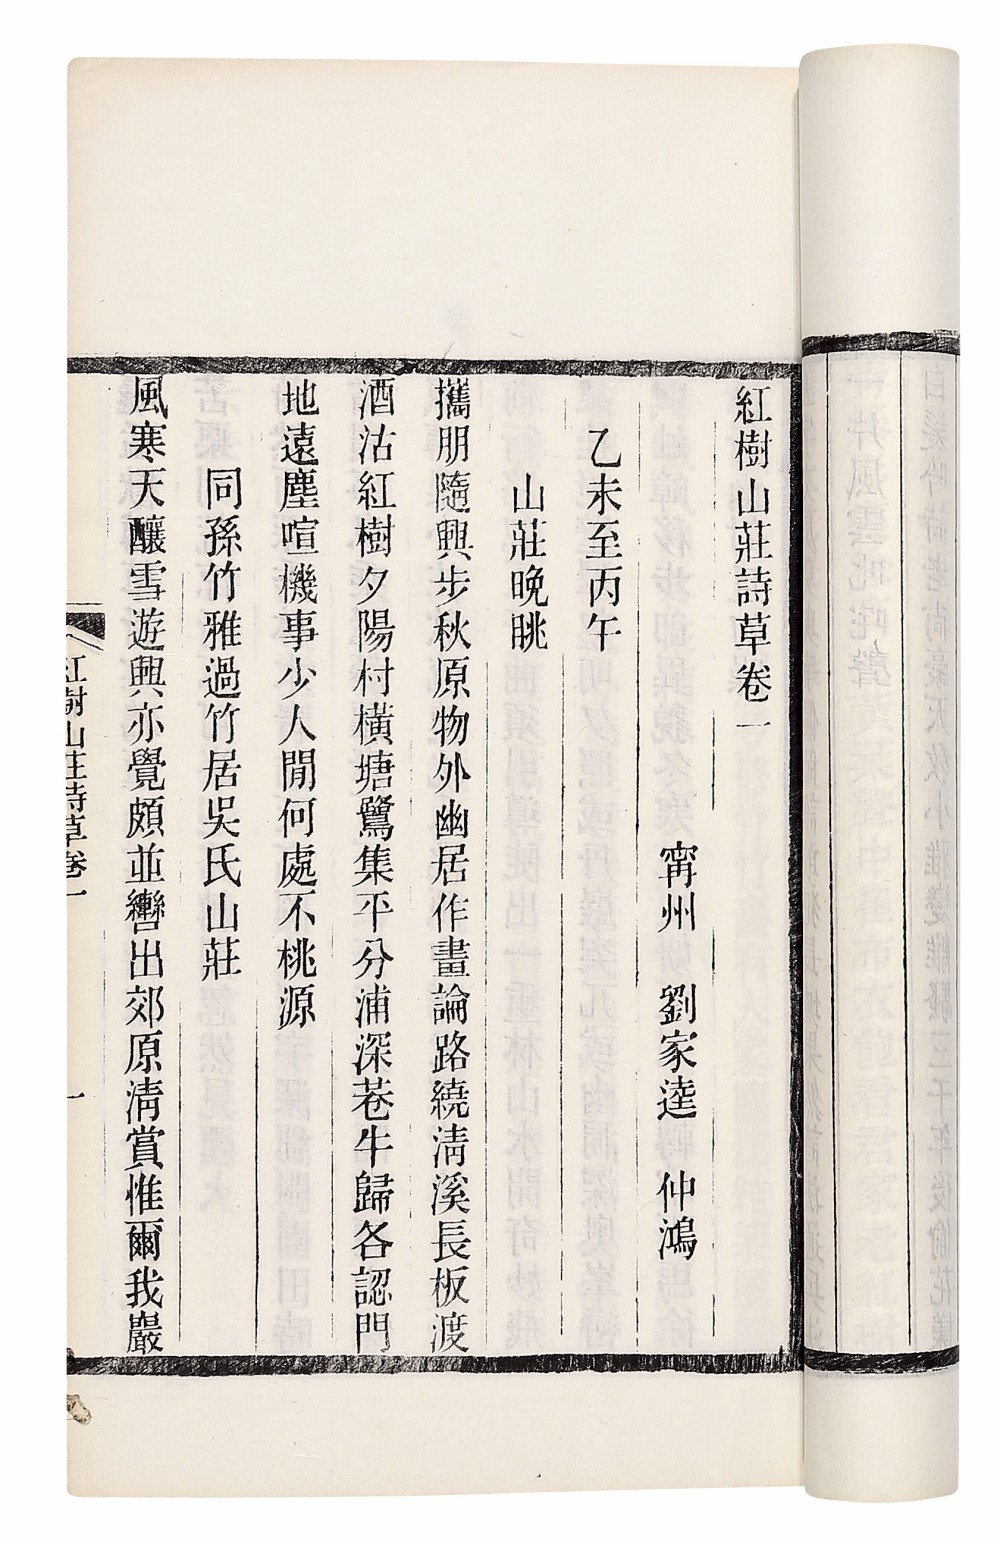 紅樹山莊詩草卷一
甯州 劉家逵 仲鴻
乙未至丙午
山莊晚眺
攜朋隨興步秋原物外幽居作畫論路繞淸溪長板渡
酒沽紅樹夕陽村橫塘鷺集平分浦深巷牛歸各認門
地遠塵喧機事少人閒何處不桃源
同孫竹雅過竹居吳氏山莊
風寒天釀雪遊興亦覺頗並轡出郊原淸賞惟爾我巖
紅樹山莊詩草卷一
一